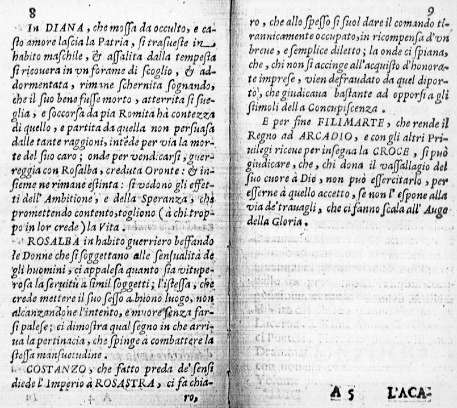 8
In DIANA, che mossa da occulto, e ca-
sto amore lascia la Patria, si trasueste in
habito maschile, & assalita dalla tempesta
si ricouera in un forame di scoglio, & ad-
dormentata, rimane schernita sognando,
che il suo bene fusse morto, atterrita si sue-
glia, e soccorsa da pia Romita hà contezza
di quello, e partita da quella non persuasa
dalle tante raggioni, intēde per via la mor-
te del suo caro; onde per vendicarsi, guer-
reggia con Rosalba, creduta Oronte: & in-
sieme ne rimane estinta: si vedonò gli effet-
ti dell'Ambitione, e della Speranza, che
promettendo contento, togliono (à chi trop-
po in lor crede) la Vita.
ROSALBA in habito guerriero beffando
le Donne che si soggettano alle sensualità de
gli huomini, ci appalesa quanto sia vitupe-
rosa la seruitù à simil soggetti; l'istessa, che
crede mettere il suo sesso à buono luogo, non
alcanzandone l'intento, e muore senza far-
si palese; ci dimostra à qual segno in che arri-
ua la pertinacia, che spinge a combattere la
stessa mansuetudine.
COSTANZO, che fatto preda de' sensi
diede l'Imperio à ROSASTRA, ci fa chia-
ro,
9
ro, che allo spesso si suol dare il comando ti-
rannicamente occupato, in ricompensa d'un
breue, e semplice diletto; la onde ci spiana,
che, chi non si accinge all'acquisto d'honora-
te imprese, vien defraudato da quel dipor-
to, che giudicaua bastante ad opporsi a gli
stimoli della Concupiscenza.
E per fine FILIMARTE, che rende il
Regno ad ARCADIO, e con gli altri Pri-
uilegi riceue per insegna la CROCE, si può
giudicare, che, chi dona il vassallagio del
suo cuore à Dio, non può essercitarlo, per
esserne à quello accetto, se non l'espone alla
via de' trauagli, che ci fanno scala all'Auge
della Gloria.
A 5 L'ACA-